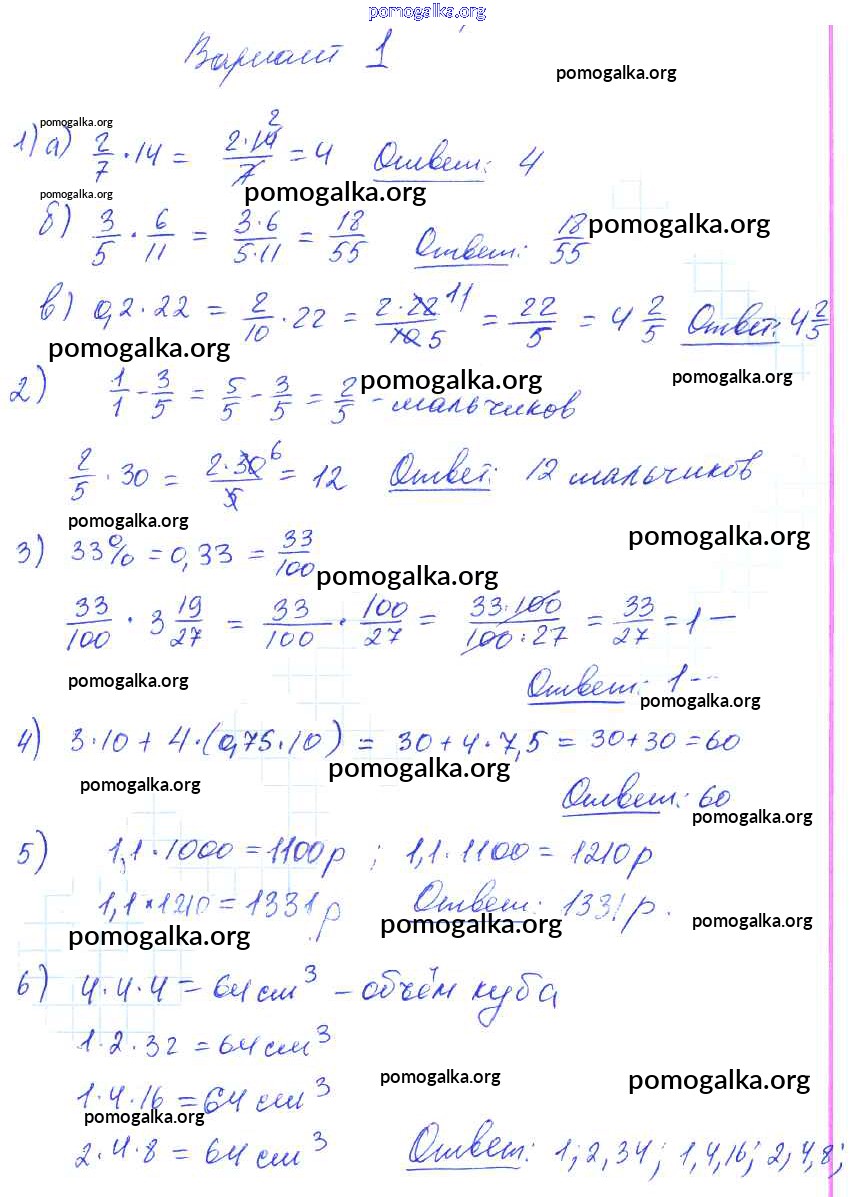 pomogalka.org
Вариант 1
pomogalka.org
pomogalka.org
1) а) 2/7 · 14 = 2·14 2/7 = 4 Ответ: 4
pomogalka.org pomogalka.org
б) 3/5 · 6/11 = 3·6/5·11 = 18/55 Ответ: 18/55
pomogalka.org
в) 0,2 · 22 = 2/10 · 22 = 2·22 11/10 5 = 22/5 = 4 2/5 Ответ: 4 2/5
pomogalka.org
2) 1/1 - 3/5 = 5/5 - 3/5 = 2/5 - мальчиков
pomogalka.org pomogalka.org
2/5 · 30 = 2·30 6/5 = 12 Ответ: 12 мальчиков
pomogalka.org
pomogalka.org
3) 33% = 0,33 = 33/100
pomogalka.org
33/100 · 3 19/27 = 33/100 · 100/27 = 33·100/100:27 = 33/27 = 1 —
pomogalka.org
Ответ: 1 --
pomogalka.org
4) 3·10 + 4·(0,75·10) = 30 + 4·7,5 = 30+30 = 60
pomogalka.org
pomogalka.org
Ответ: 60
pomogalka.org
5) 1,1·1000 = 1100р ; 1,1·1100 = 1210р
1,1*1210 = 1331р Ответ: 1331р.
pomogalka.org pomogalka.org pomogalka.org
6) 4·4·4 = 64 см³ – объём куба
1·2·32 = 64 см³
pomogalka.org pomogalka.org
1·4·16 = 64 см³
pomogalka.org
2·4·8 = 64 см³ Ответ: 1; 2, 34; 1,4,16; 2,4,8;